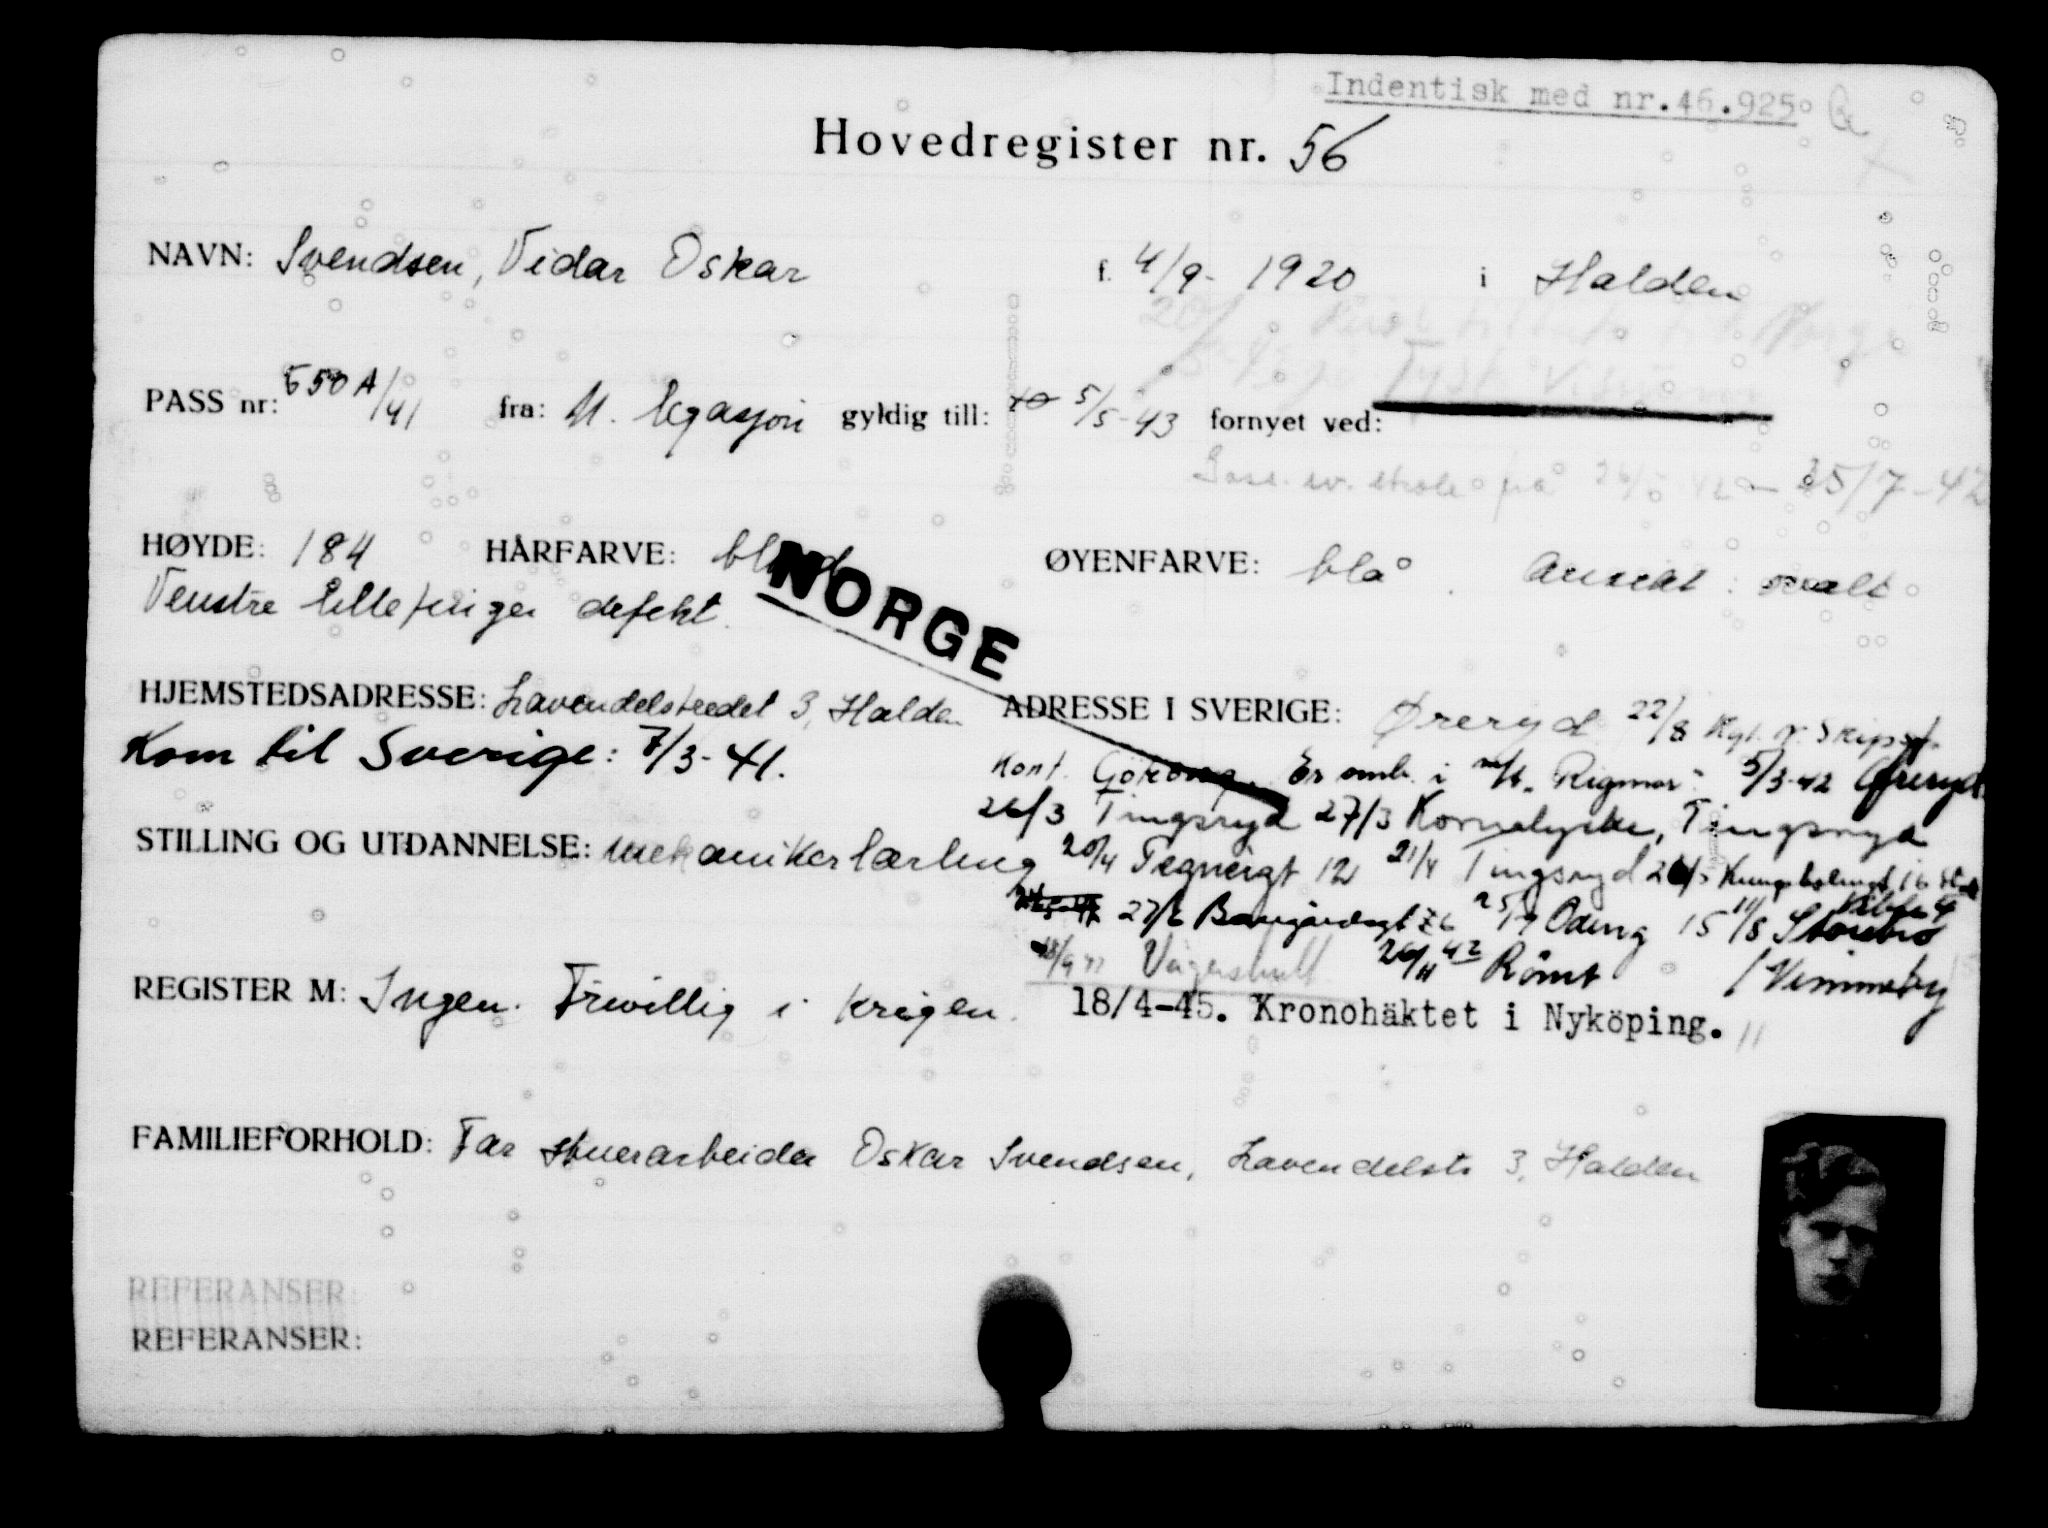 Indentisk med nr.46.925
Hovedregister nr. 56
NAVN: Svendsen, Vidar Oskar f. 4/9- 1920 i Halden
PASS nr: 550 A/41 fra: N. legasjon gyldig till: 5/5-43 fornyet ved:
fra 25/7-42
HØYDE: 184 HÅRFARVE: blond ØYENFARVE: blå. Ansikt: ovalt
Venstre lillefinger defekt.
NORGE
HJEMSTEDSADRESSE: Lavendelstredet 3, Halden ADRESSE I SVERIGE: Øreryd 22/8 Kgl. N. Skips
Kom til Sverige: 7/3-41. Kont. Göteborg. Er omb. i m/t. "Rigmor" 5/3-42 Øreryd
26/3 Tingsryd 27/3 Tingsryd
STILLING OG UTDANNELSE: mekanikerlærling 20/4 Tegnergt 12 21/4 Tingsryd
27/6 Odeng 15 11/8 Storebro
Vägershult 26/11 42 Römt / Vimmerby
REGISTER M: Ingen. Frivillig i krigen. 18/4-45. Kronohäktet i Nyköping.
FAMILIEFORHOLD: Far stuerarbeider Oskar Svendsen, Lavendelstr 3, Halden
REFERANSER:
REFERANSER: